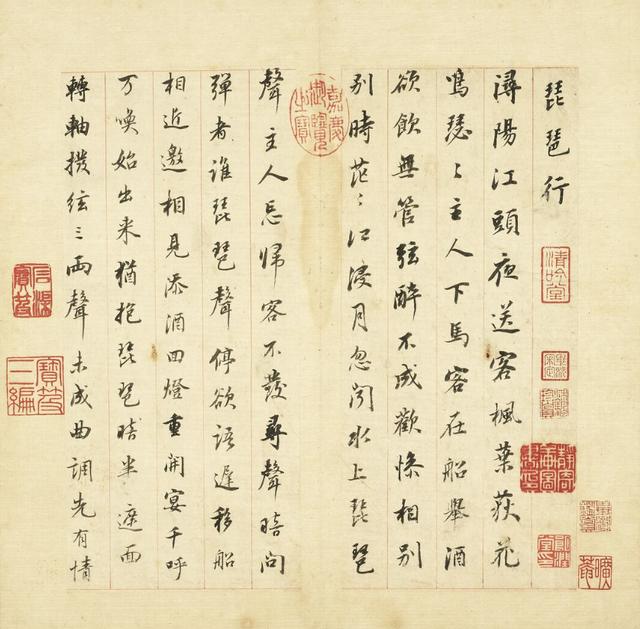 琵琶行
潯陽江頭夜送客楓葉荻花
鳴瑟〻主人下馬客在船舉酒
欲飲無管弦醉不成歡慘相別
別時茫〻江浸月忽聞水上琵琶
嘉慶御覽之寶
聲主人忘歸客不發尋聲暗問
彈者誰琵琶聲停欲語遲移船
相近邀相見添酒回燈重開宴千呼
万喚始出来猶抱琵琶暗半遮面
轉軸撥弦三兩聲未成曲調先有情
清吟堂
石渠寶笈
寶笈三編